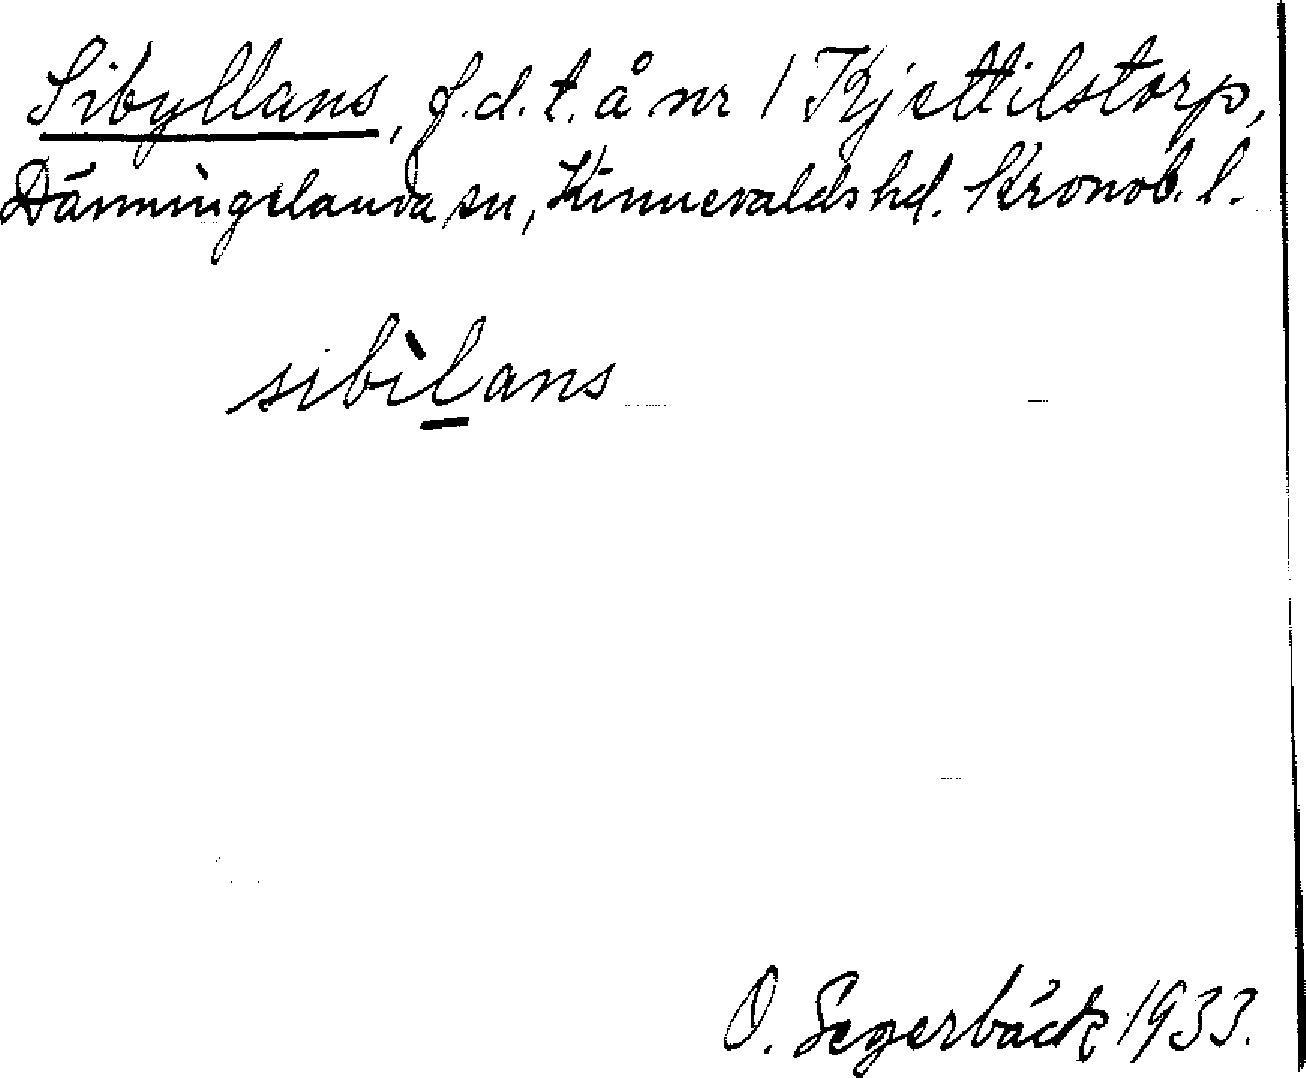 Sibyllans, f.d.t. å nr 1 Kjettilstorp,
Dänningelanda sn, Kinnevalds hd. Kronob. l.
sibìlans
O. Segerbäck 1933.